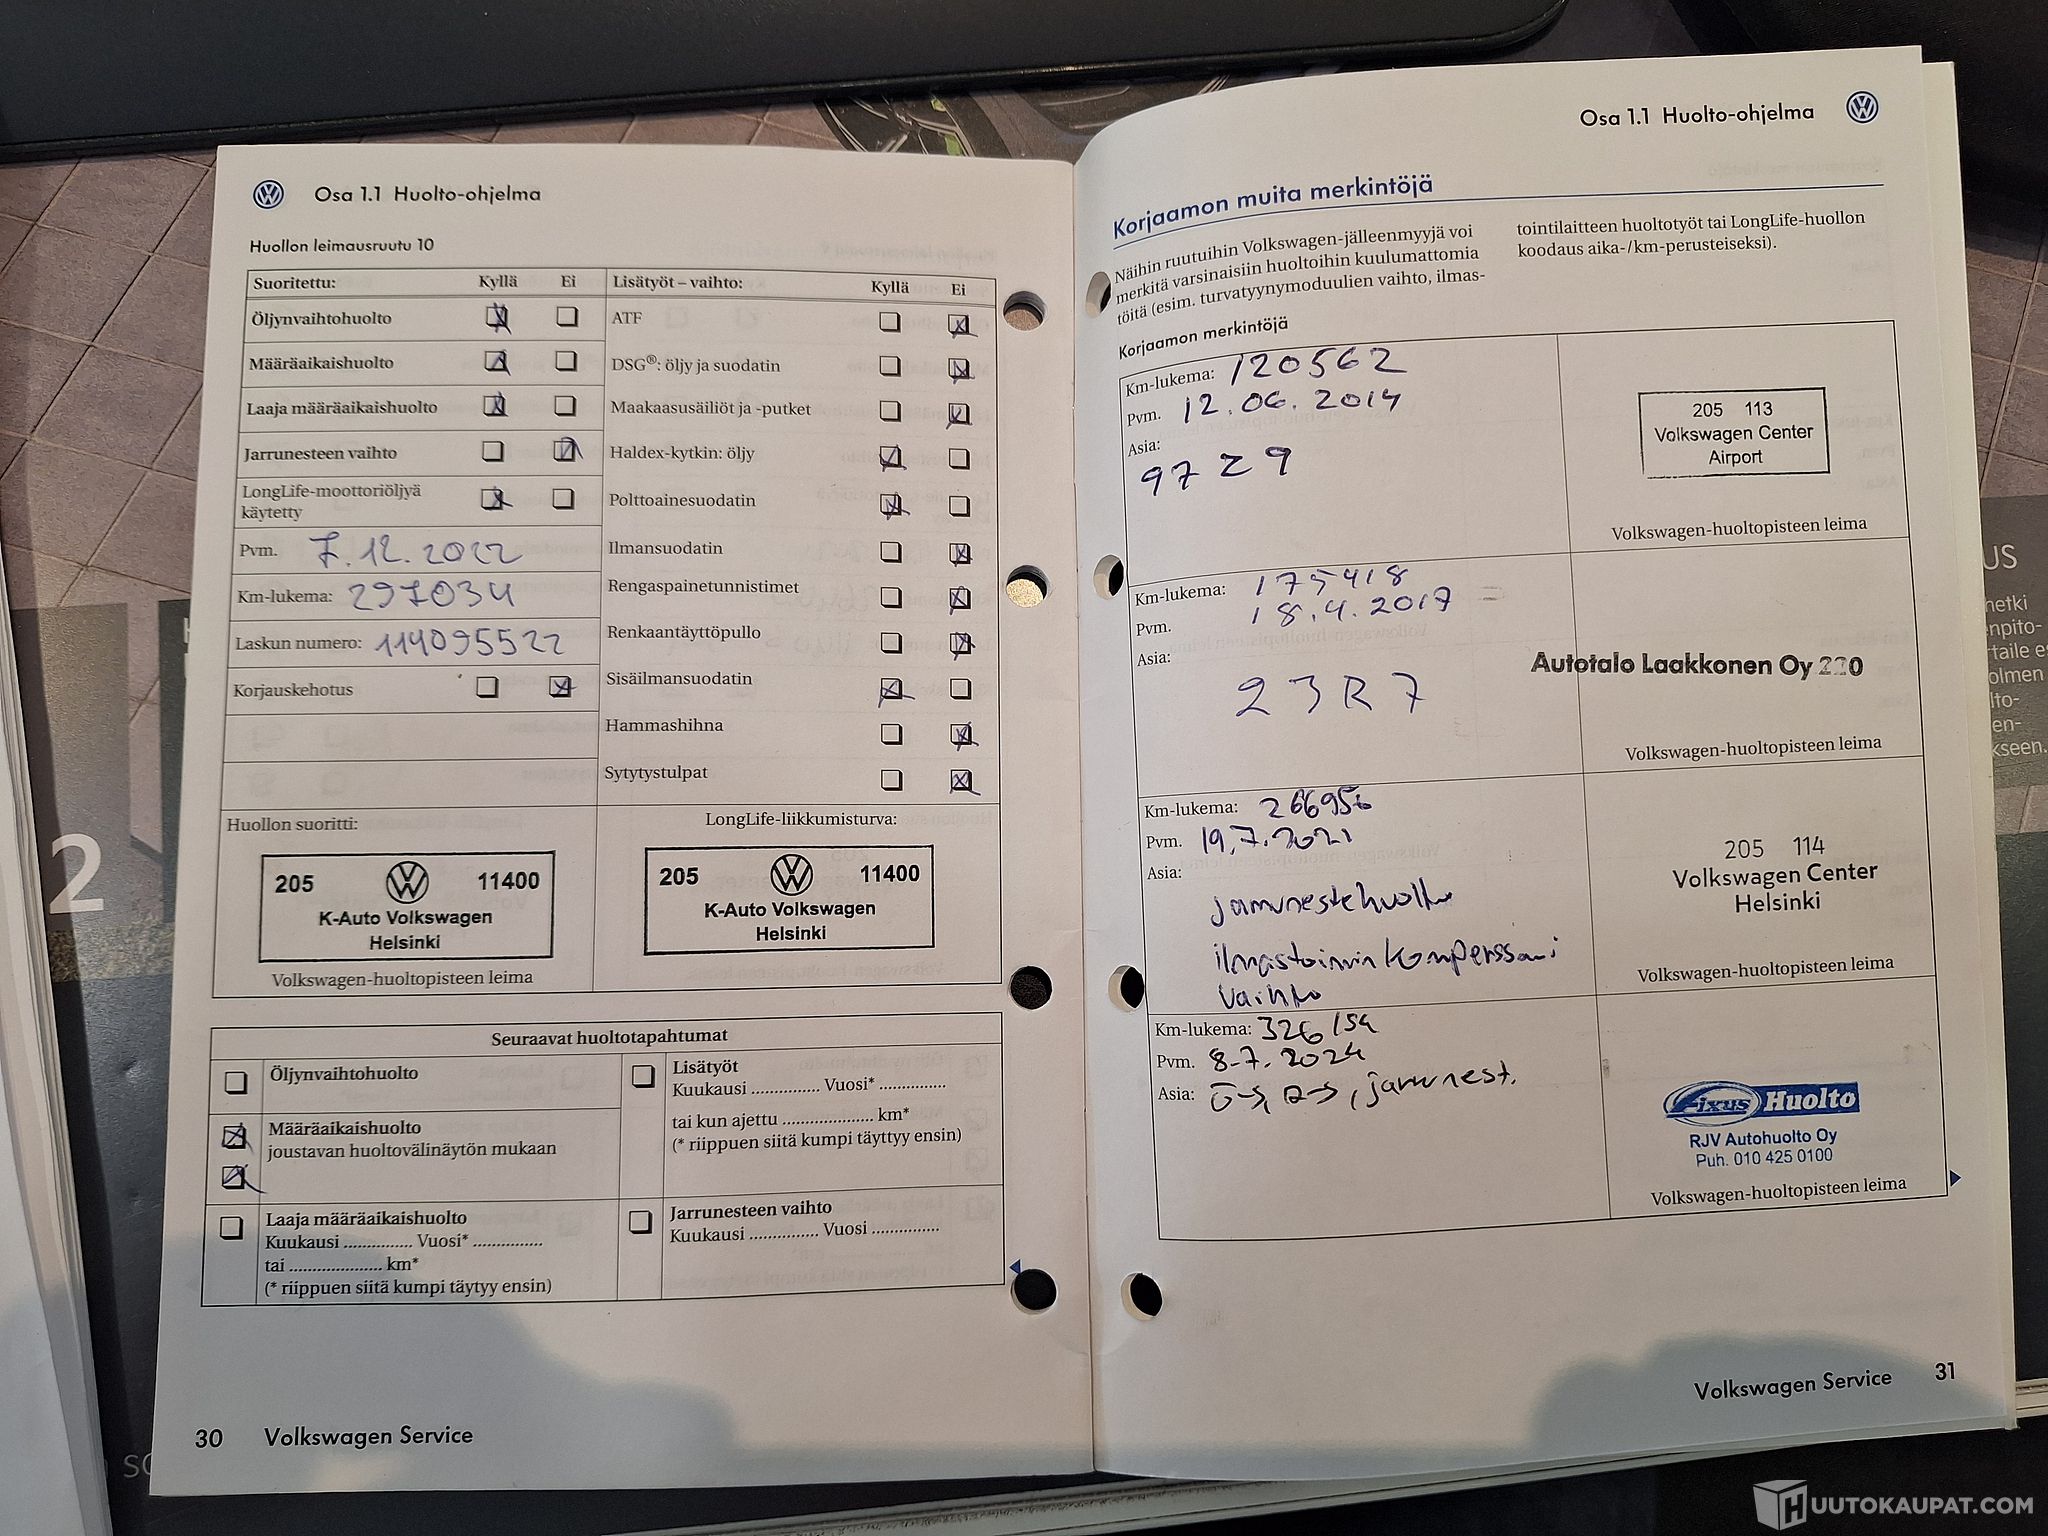 Osa 1.1 Huolto-ohjelma
Huollon leimausruutu 10
Suoritettu: Kyllä Ei
Öljynvaihtohuolto
Määräaikaishuolto
Laaja määräaikaishuolto
Jarrunesteen vaihto
LongLife-moottoriöljyä
käytetty
Pvm. 7.12.2022
Km-lukema: 297034
Laskun numero: 114095522
Korjauskehotus
Lisätyöt – vaihto: Kyllä Ei
ATF
DSG®: öljy ja suodatin
Maakaasusäiliöt ja -putket
Haldex-kytkin: öljy
Polttoainesuodatin
Ilmansuodatin
Rengaspainetunnistimet
Renkaantäyttöpullo
Sisäilmansuodatin
Hammashihna
Sytytystulpat
Huollon suoritti:
205 11400
K-Auto Volkswagen
Helsinki
Volkswagen-huoltopisteen leima
LongLife-liikkumisturva:
205 11400
K-Auto Volkswagen
Helsinki
Seuraavat huoltotapahtumat
Öljynvaihtohuolto
Määräaikaishuolto
joustavan huoltovälinäytön mukaan
Laaja määräaikaishuolto
Kuukausi ............... Vuosi* ...............
tai ..................... km*
(* riippuen siitä kumpi täytyy ensin)
Lisätyöt
Kuukausi ............... Vuosi* ...............
tai kun ajettu .................... km*
(* riippuen siitä kumpi täyttyy ensin)
Jarrunesteen vaihto
Kuukausi ............... Vuosi ...............
30 Volkswagen Service
Osa 1.1 Huolto-ohjelma
Korjaamon muita merkintöjä
Näihin ruutuihin Volkswagen-jälleenmyyjä voi
merkitä varsinaisiin huoltoihin kuulumattomia
töitä (esim. turvatyynymoduulien vaihto, ilmas-
tointilaitteen huoltotyöt tai LongLife-huollon
koodaus aika-/km-perusteiseksi).
Korjaamon merkintöjä
Km-lukema: 120562
Pvm. 12.06.2014
Asia:
97Z9
205 113
Volkswagen Center
Airport
Volkswagen-huoltopisteen leima
Km-lukema: 175418
Pvm. 18.4.2017
Asia:
23R7
Autotalo Laakkonen Oy 220
Volkswagen-huoltopisteen leima
Km-lukema: 266956
Pvm. 19.7.2021
Asia:
jarrunestehuolto
ilmastoinnin komperssori
vaihto
205 114
Volkswagen Center
Helsinki
Volkswagen-huoltopisteen leima
Km-lukema: 326154
Pvm. 8-7.2024
Asia: jarrunest.
Fixus Huolto
RJV Autohuolto Oy
Puh. 010 425 0100
Volkswagen-huoltopisteen leima
Volkswagen Service 31
2
US
hetki
npito-
rtaile es
olmen
lto-
en-
kseen.
HUUTOKAUPAT.COM